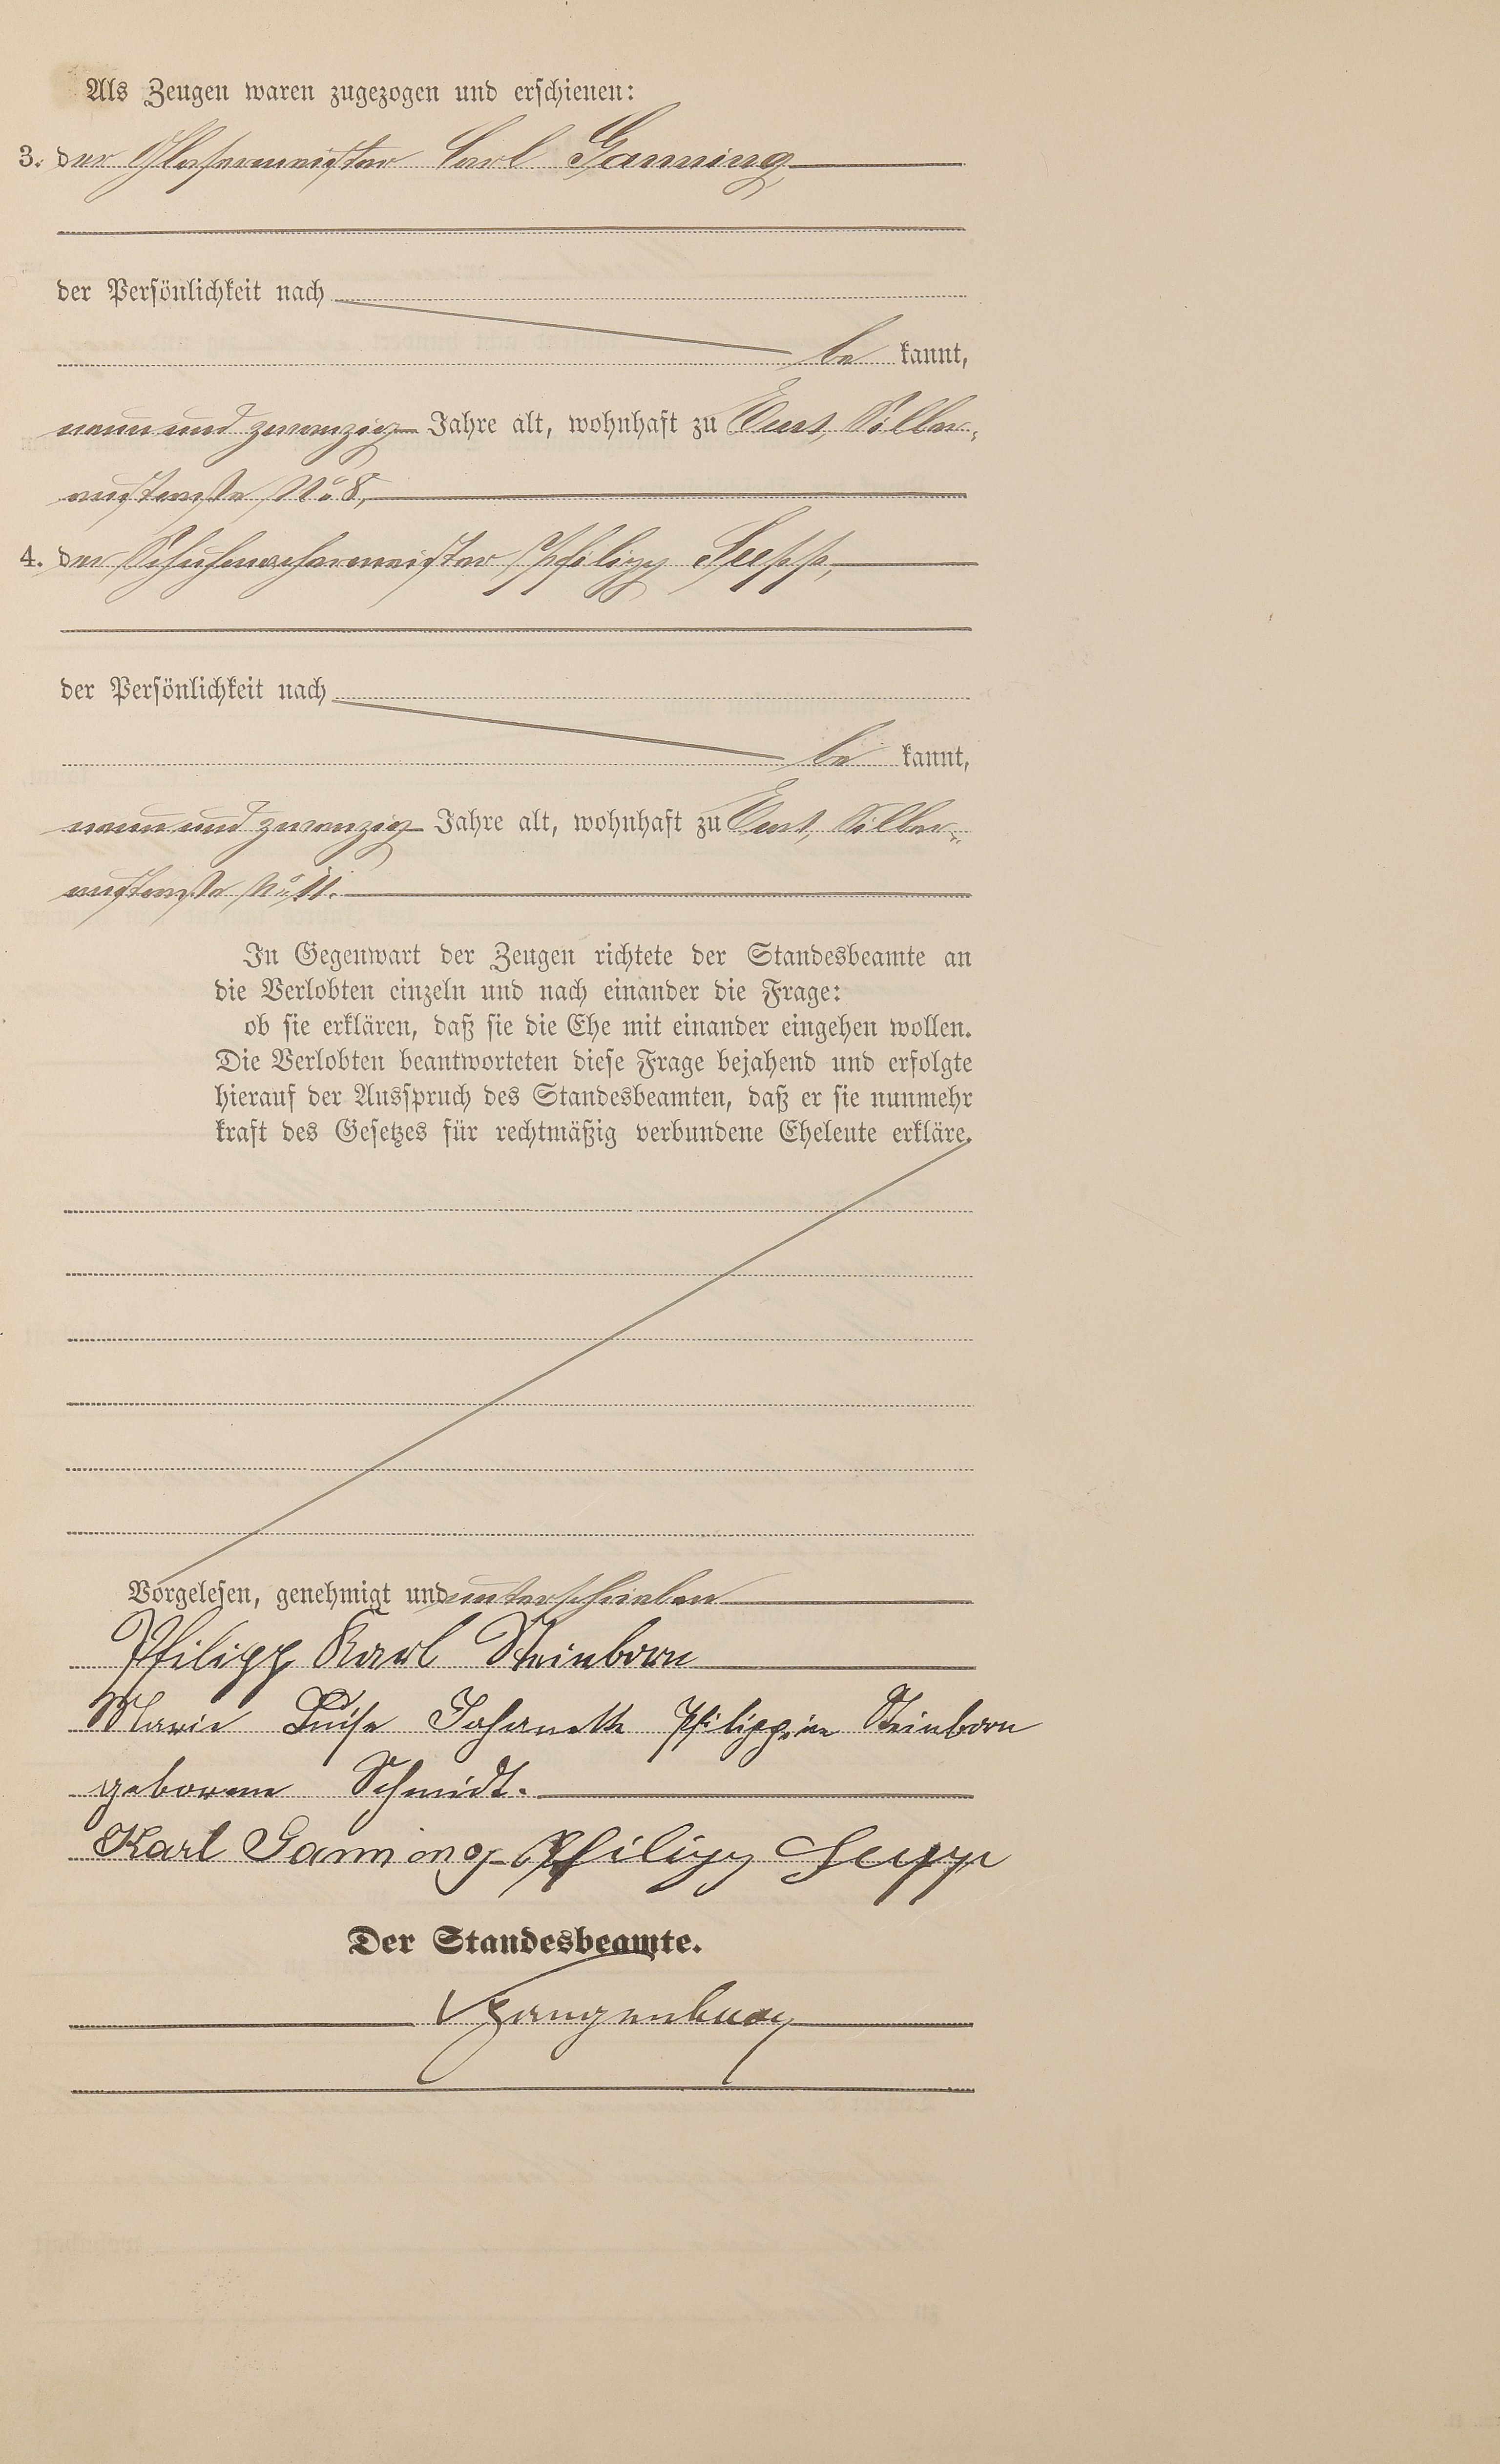 Als Zeugen waren zugezogen und erschienen:
3. der Glasermeister Carl Ganning,
der Persönlichkeit nach
be kannt,
neun und zwanzig Jahre alt, wohnhaft zu Ems, Silber-
austraße No 8,
4. der Schuhmachermeister Philipp Seepp,
der Persönlichkeit nach
be kannt,
neun und zwanzig Jahre alt, wohnhaft zu Ems, Silber-
austraße No 11.
In Gegenwart der Zeugen richtete der Standesbeamte an
die Verlobten einzeln und nach einander die Frage:
ob sie erklären, daß sie die Ehe mit einander eingehen wollen.
Die Verlobten beantworteten diese Frage bejahend und erfolgte
hierauf der Ausspruch des Standesbeamten, daß er sie nunmehr
kraft des Gesetzes für rechtmäßig verbundene Eheleute erkläre.
Vorgelesen, genehmigt und unterschrieben
Philipp Karl Steinborn
Marie Luise Johanette Philippine Steinborn
geborene Schmidt.
Karl Ganning Philipp Sepp
Der Standesbeamte.